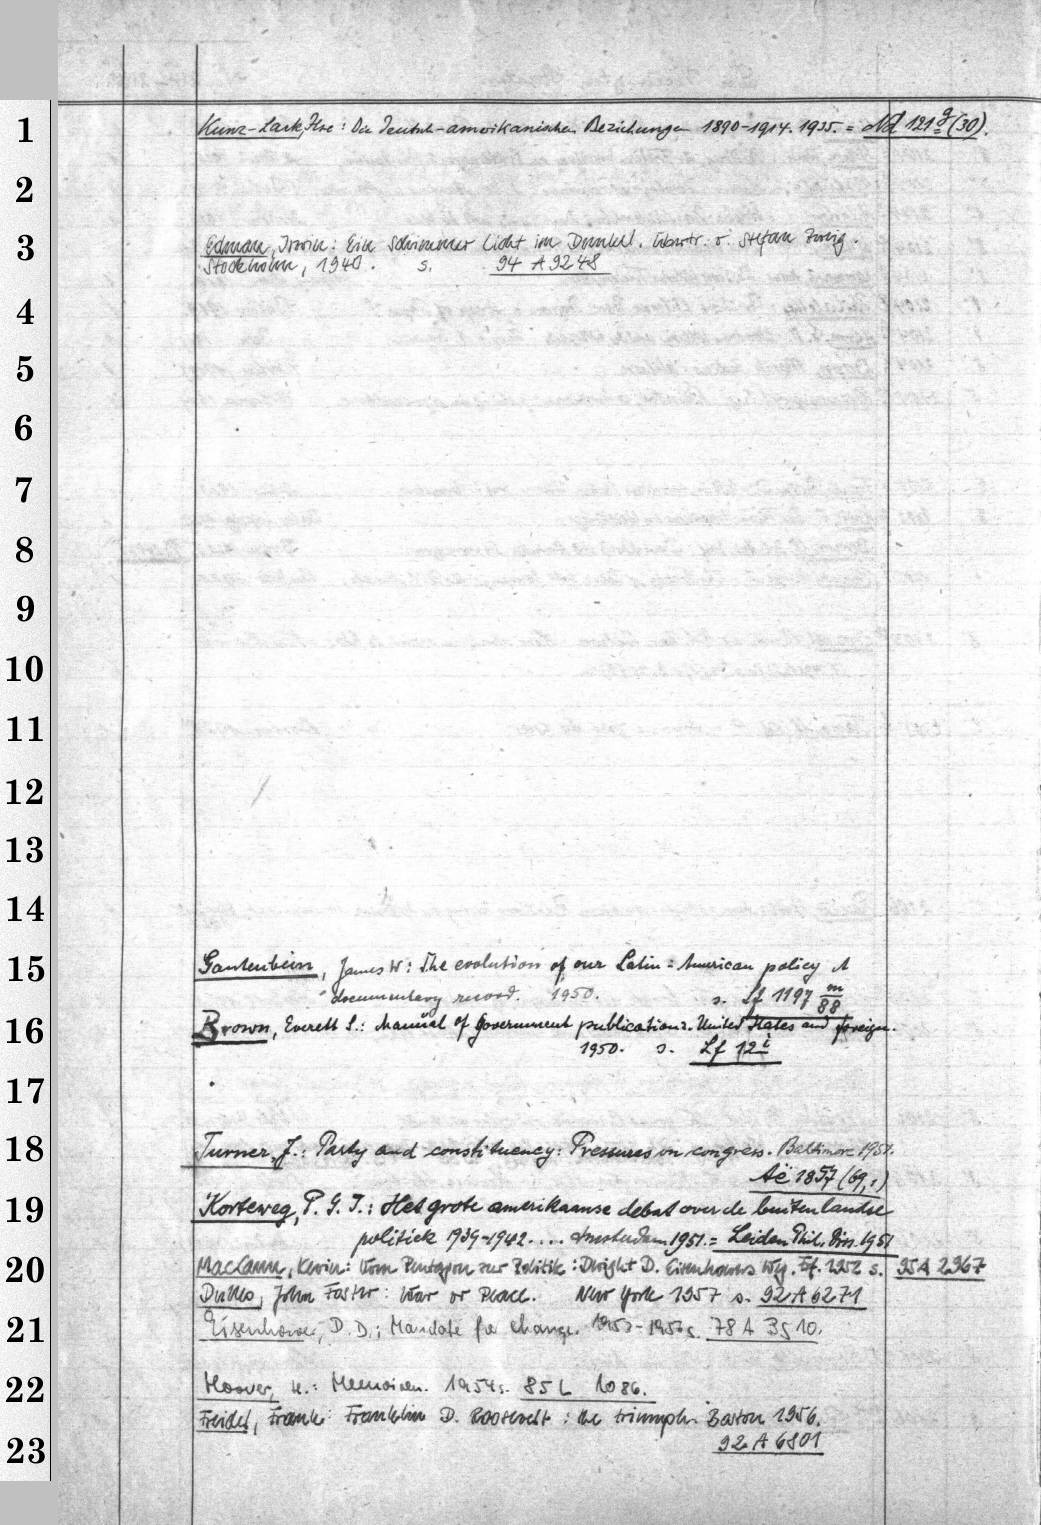 1
Kunz-Lack, Ilse: Die deutsch-amerikanischen Beziehungen 1890-1914. 1935. = Nd 121 g (30).
2
3
Edman, Irwin: Ein Schimmer Licht im Dunkel. Übertr. v. Stefan Zweig.
Stockholm, 1940. s. 94 A 9248
4
5
6
7
8
9
10
11
12
13
14
15
Gantenbein, James W: The evolution of our Latin=American policy A
documentary record. 1950. s. Lf 1197 m/88
16
Brown, Everett S.: Manual of government publications. United States and foreign.
1950. s. Lf 12 i
17
18
Turner, J.: Party and constituency: Pressures on congress. Baltimore 1951.
Aë 1857 (69,1)
19
Korteweg, P. G. J.: Het grote amerikaanse debat over de buitenlandse
politiek 1939-1942.... Amsterdam 1951. = Leiden Phil. Diss. 1951
20
MacCann, Kevin: Vom Pentagon zur Politik: Dwight D. Eisenhowers Weg. 1952 s. 95 A 2967
Dulles, John Foster: War or Peace. New York 1957 s. 92 A 6271
21
Eisenhower, D. D.: Mandate for change. 1953-1956 s. 78 A 3510.
22
Hoover, H.: Memoiren. 1954 s. 85 L 1086.
Freidel, Frank: Franklin D. Roosevelt: the triumph. Boston 1956.
23
92 A 6801